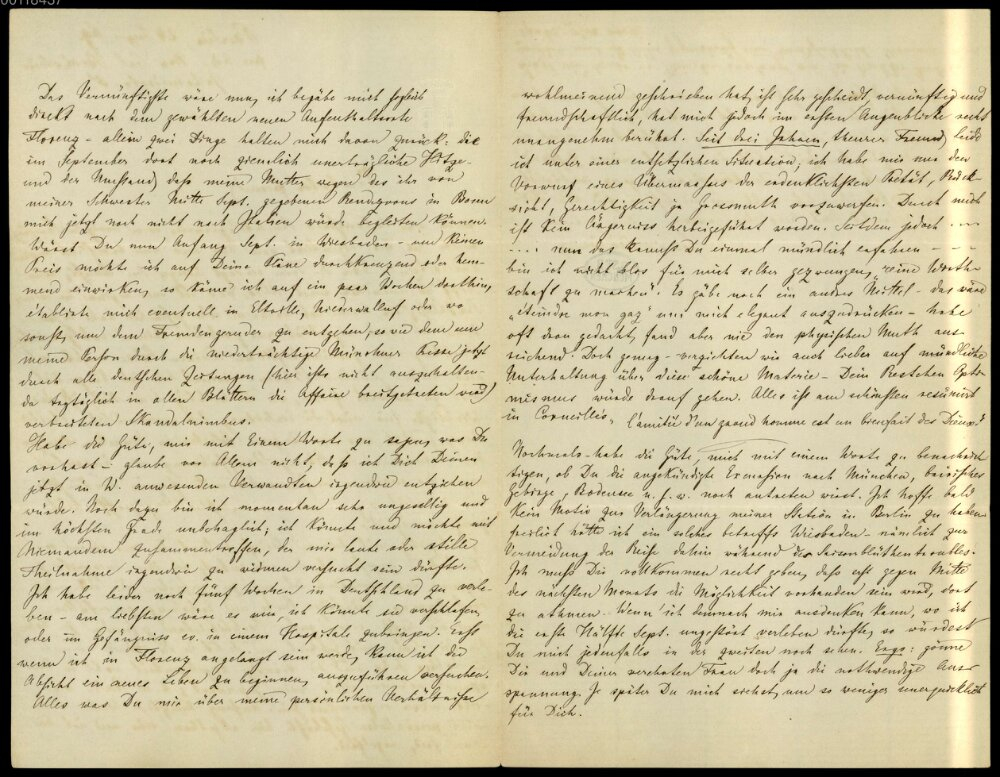 00118437
Das Vernünftigste wäre nun, ich begäbe mich sogleich
direkt nach dem gewählten neuen Aufenthaltsorte
Florenz – allein zwei Dinge halten mich davon zurück: die
im September dort noch ziemlich unerträgliche Hitze
und der Umstand, daß meine Mutter wegen des ihr von
meiner Schwester Mitte Sept. gegebenen Rendezvous in Bonn
mich jetzt noch nicht nach Italien würde begleiten können.
Wärst Du nun Anfang Sept. in Wiesbaden – um keinen
Preis möchte ich auf Deine Pläne durchkreuzend oder hem-
mend einwirken, so käme ich auf ein paar Wochen dorthin,
etablirte mich eventuell in Eltville, Niederwalluf oder wo
sonst, um dem Fremdengeruder zu entgehen, so wie dem um
meine Person durch die niederträchtige Münchner Presse jetzt
durch alle deutschen Zeitungen (hier ists nicht auszuhalten –
da tagtäglich in allen Blättern die Affaire breitgetreten wird)
verbreiteten Skandalnimbus.
Habe die Güte, mir mit Einem Worte zu sagen, was Du
vorhast – glaube vor Allem nicht, daß ich Dich Deinen
jetzt in W. anwesenden Verwandten irgendwie entziehen
würde. Noch dazu bin ich momentan sehr ungesellig und
im höchsten Grade unbehaglich; ich könnte und möchte mit
Niemandem zusammentreffen, der mir laute oder stille
Theilnahme irgendwie zu widmen versucht sein dürfte.
Ich habe leider noch fünf Wochen in Deutschland zu verle-
ben – am liebsten wäre es mir ich könnte sie verschlafen,
oder im Gefängniss ev. in einem Hospitale zubringen. Erst
wenn ich in Florenz angelangt sein werde, kann ich die
Absicht ein neues Leben zu beginnen, auszuführen versuchen.
Alles was Du mir über meine persönlichen Verhältnisse
wohlmeinend geschrieben hat, ist sehr gescheidt, vernünftig und
freundschaftlich, hat mich jedoch im ersten Augenblicke recht
unangenehm berührt. Seit drei Jahren, theurer Freund, leide
ich unter einer entsetzlichen Situation; ich habe mir nur den
Vorwurf eines Übermaasses der erdenklichsten Pietät, Rück-
sicht, Gerechtigkeit ja Grossmuth vorzuwerfen. Durch mich
ist kein Ärgerniss herbeigeführt worden. Seitdem jedoch ....
.... nun das kannst Du einmal mündlich erfahren – – –
bin ich nicht blos für mich selber gezwungen, „reine Wirth-
schaft zu machen". Es gäbe noch ein andres Mittel – das wäre
„éteindre mon gaz" um mich elegant auszudrücken – habe
oft dran gedacht, fand aber nie den physischen Muth aus-
reichend. Doch genug – verzichten wir auch lieber auf mündliche
Unterhaltung über diese schöne Materie – Dein Restchen Opti-
mismus würde drauf gehen. Alles ist am schönsten resümirt
in Corneille's, „l'amitié d'un grand homme est un bienfait des Dieux."
Nochmals – habe die Güte, mich mit einem Worte zu benachrich-
tigen, ob Du die angekündigte Excursion nach München, bairisches
Gebirge, Bodensee u. s. w. noch antreten wirst. Ich hoffe bald
kein Motiv zur Verlängerung meiner Station in Berlin zu haben
freilich hätte ich ein solches betreffs Wiesbaden – nämlich zur
Vermeidung der Reise dahin während des Saisonblüthentroubles.
Ich muss Dir vollkommen recht geben, dass erst gegen Mitte
des nächsten Monats die Möglichkeit vorhanden sein wird, dort
zu athmen. Wenn ich demnach mir ausdenken kann, wo ich
die erste Hälfte Sept. ungestört verleben dürfte, so würdest
Du mich jedenfalls in der zweiten noch sehen. Ergo: gönne
Dir und Deiner verehrten Frau doch ja die nothwendige Aus-
spannung. Je später Du mich siehst, um so weniger unerquicklich
für Dich.